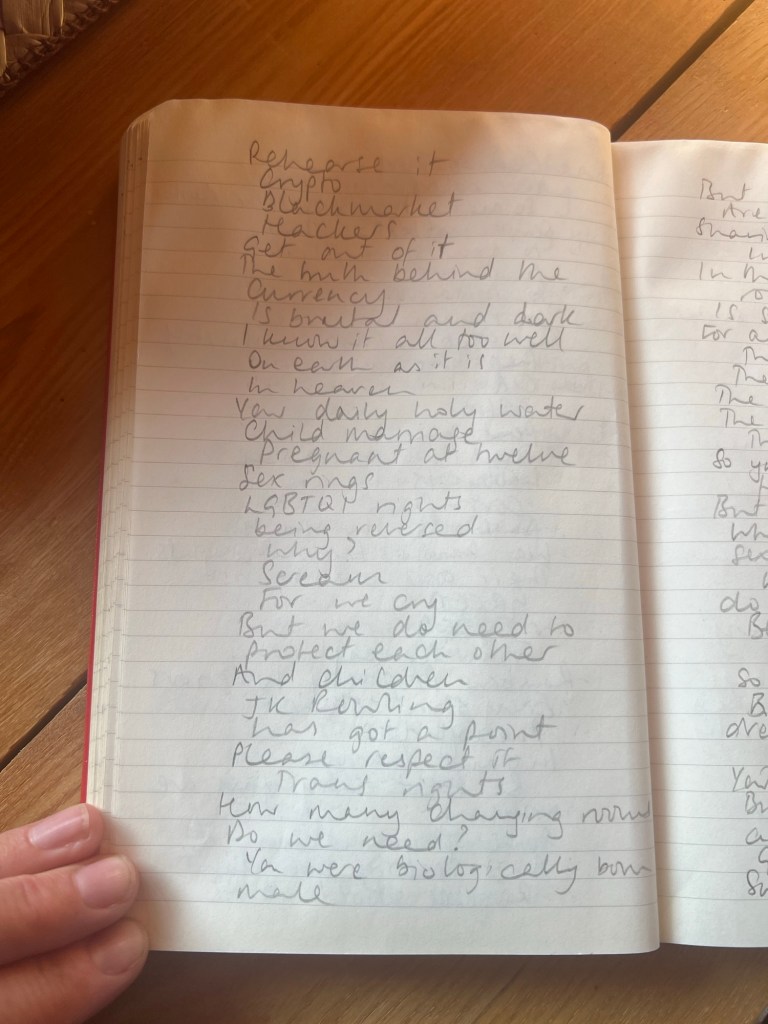 Rehearse it
Crypto
Blackmarket
Hackers
Get out of it
The truth behind the
Currency
Is brutal and dark
I know it all too well
On earth as it is
In heaven
Your daily holy water
Child marriage
Pregnant at twelve
Sex rings
LGBTQI rights
being reversed
why?
Scream
For we cry
But we do need to
protect each other
And children
JK Rowling
has got a point
Please respect it
Trans rights
How many changing rooms
Do we need?
You were biologically born
male
But
Are
In
Is
For a
The
The
The
So
But
do
So